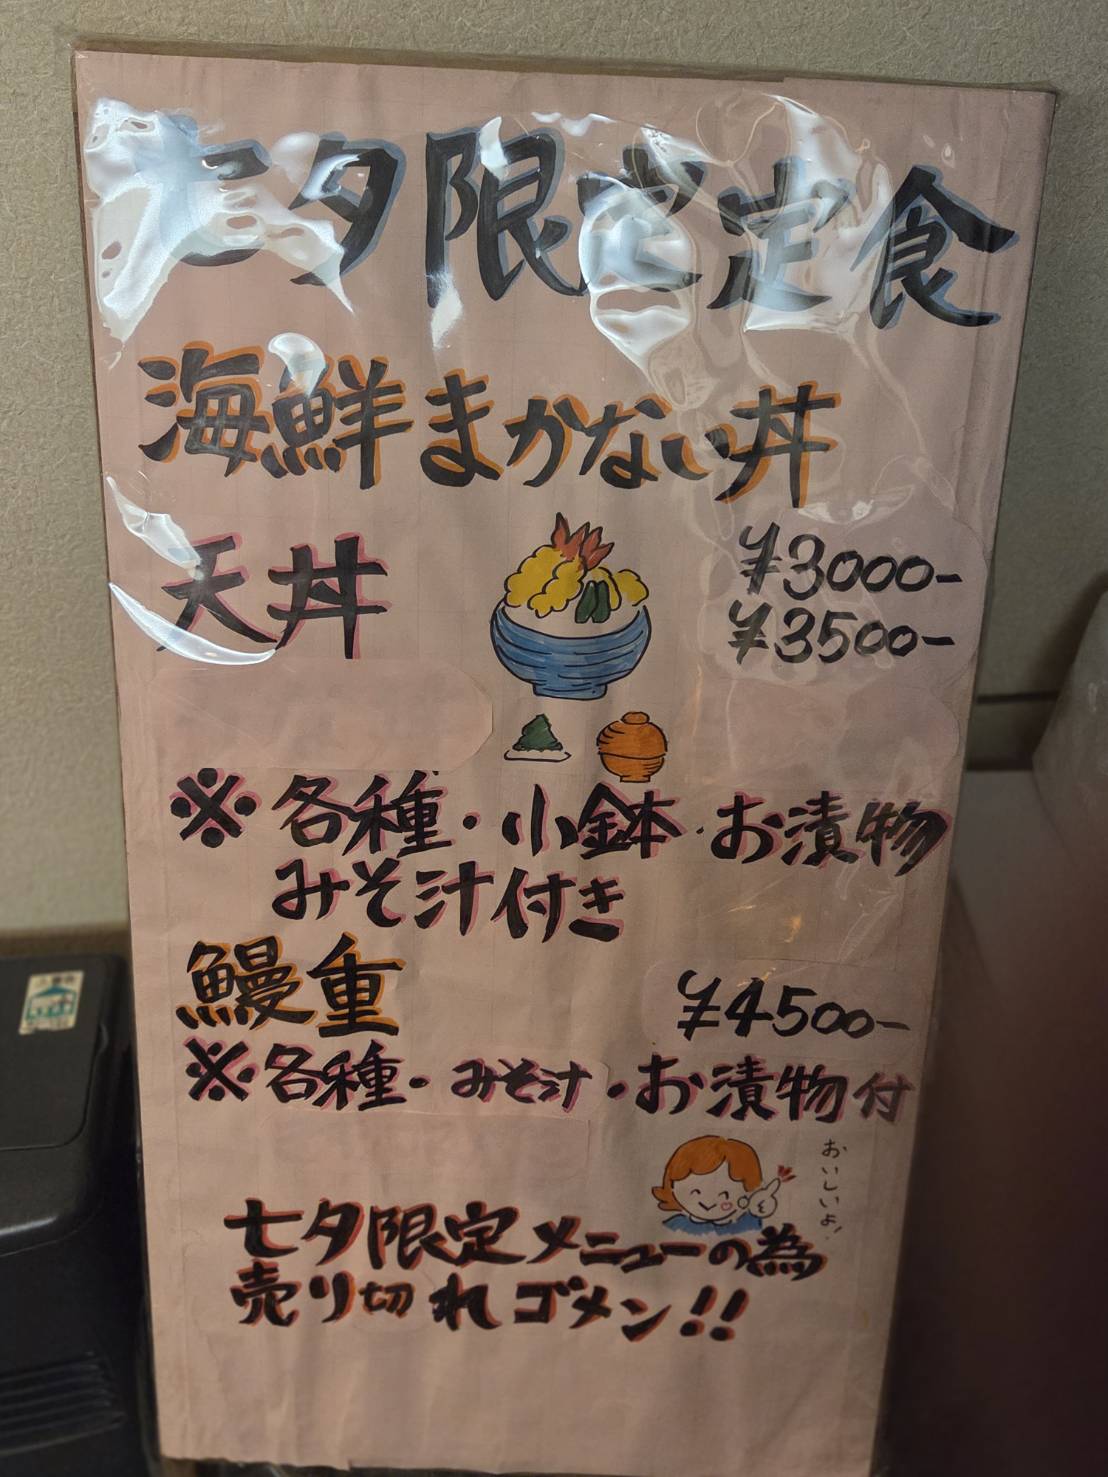 七夕限定定食
海鮮まかない丼
天丼
¥3000-
¥3500-
※各種・小鉢・お漬物
みそ汁付き
鰻重
¥4500-
※各種・みそ汁・お漬物付
おいしいよ!
七夕限定メニューの為
売り切れゴメン!!